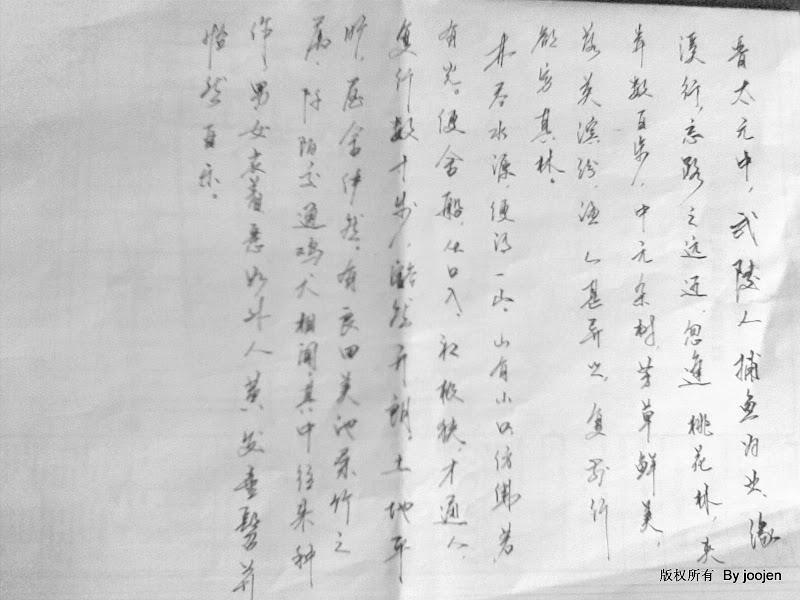 晋太元中，武陵人捕鱼为业、缘
溪行，忘路之远近，忽逢桃花林，夹
岸数百步，中无杂树，芳草鲜美，
落英缤纷，渔人甚异之，复前行
欲穷其林。
林尽水源，便得一山、山有小口，仿佛若
有光。便舍船，从口入，初极狭，才通人，
复行数十步，豁然开朗，土地平
旷，屋舍俨然，有良田美池桑竹之
属、阡陌交通鸡犬相闻，其中往来种
作，男女衣着悉如外人黄发垂髫并
怡然自乐。
版权所有 By joojen